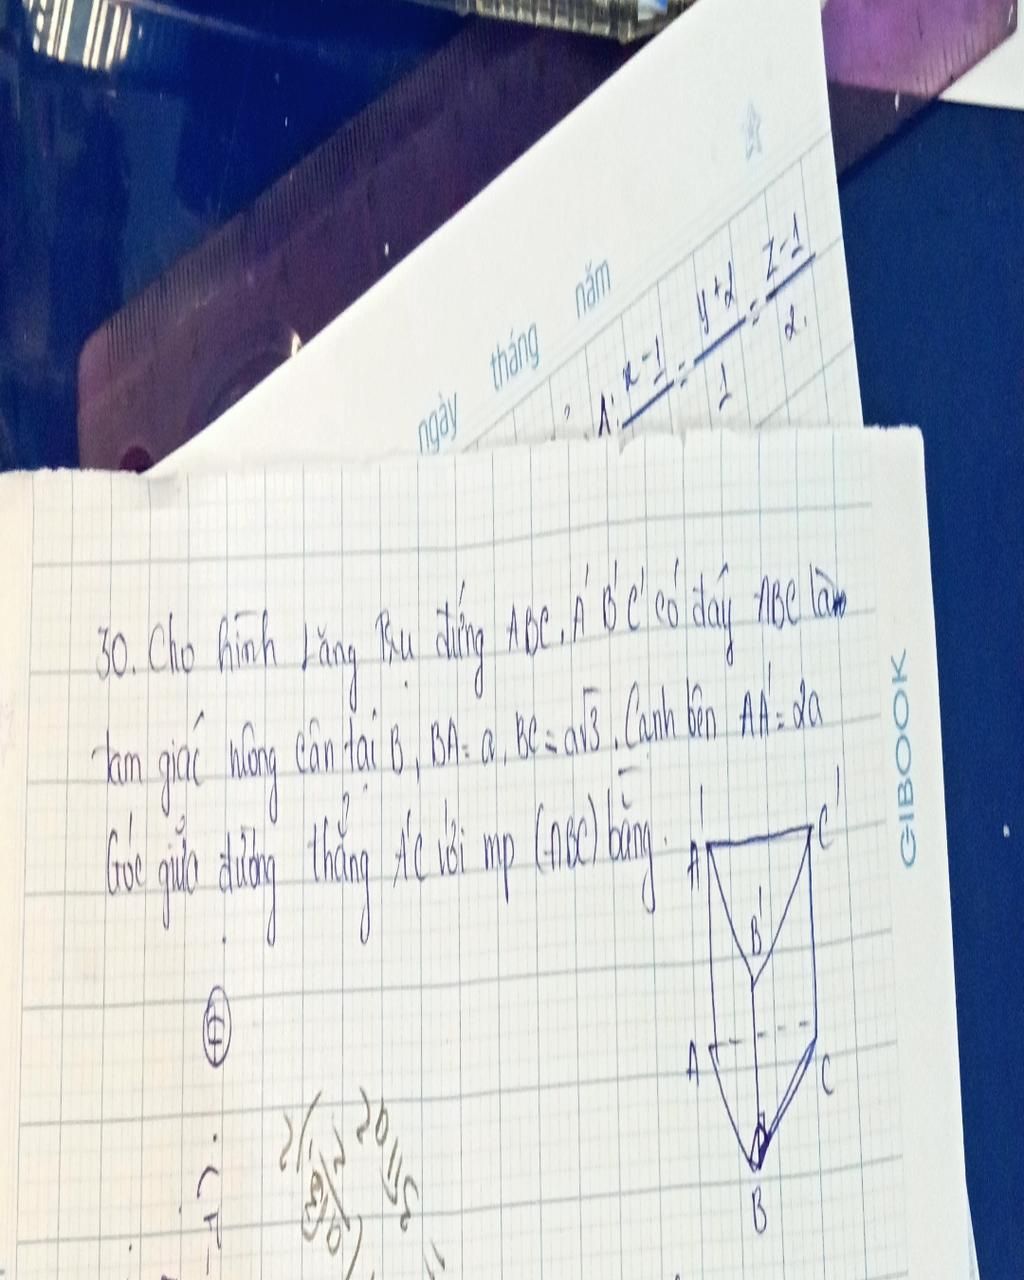 ngày tháng năm
x-1 = y+2 = z-1
1 2.
30. Cho hình lăng trụ đứng ABC.A'B'C' có đáy ABC là
tam giác vuông cân tại B, BA = a, BC = a√3. Cạnh bên AA' = 2a
Góc giữa đường thẳng A'C với mp (ABC) bằng.
A' C'
B'
A C
B
GIBOOK